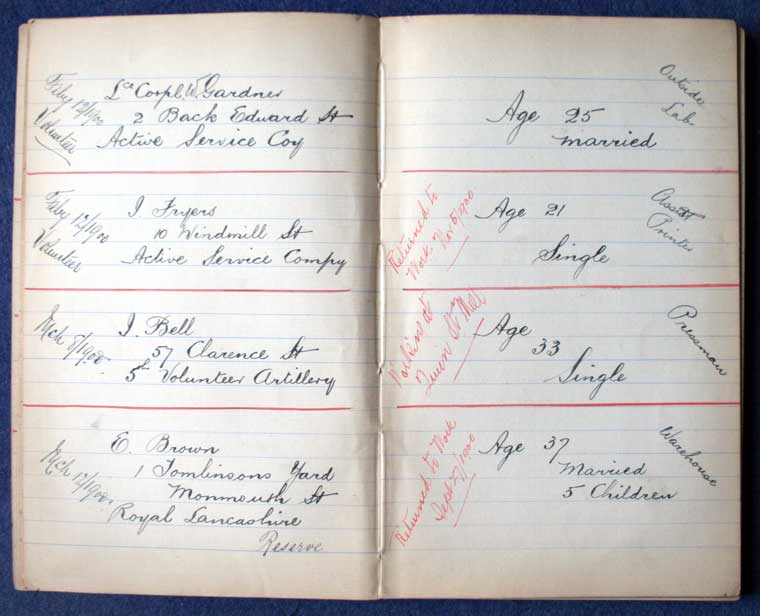 Feby 12/1900
Volunteer
Lce Corpl. W. Gardner
2 Back Edward St
Active Service Coy
Age 25
married
Outside
Lab
Feby 12/1900
Volunteer
J. Fryers
10 Windmill St
Active Service Compy
Returned to
Work. Nov 5/1900
Age 21
Single
Assist
Printer
Mch 8/1900
J. Bell
57 Clarence St
5th Volunteer Artillery
Workin at
Queen St Mill
Age
33
Single
Pressman
Mch 12/1900
E. Brown
1 Tomlinsons Yard
Monmouth St
Royal Lancashire
Reserve
Returned to Work
Sept 27/1900
Age 37
Married
5 Children
Warehouse